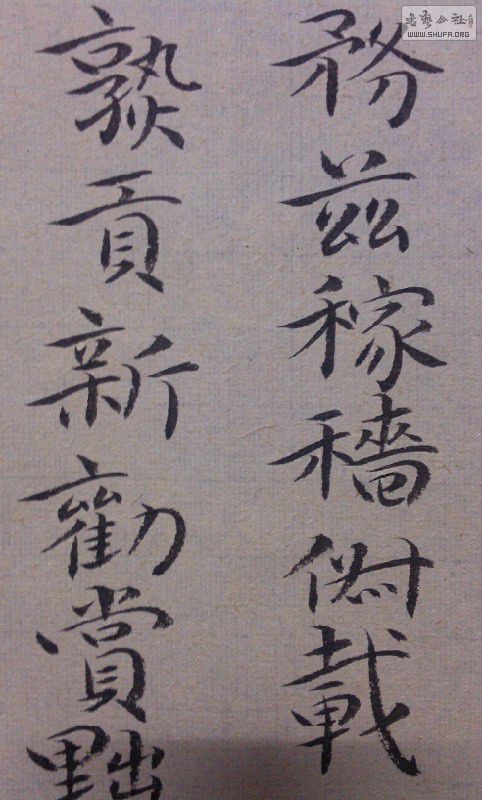 務茲稼穡俶載
熟貢新勸賞黜
書藝公社
WWW.SHUFA.ORG